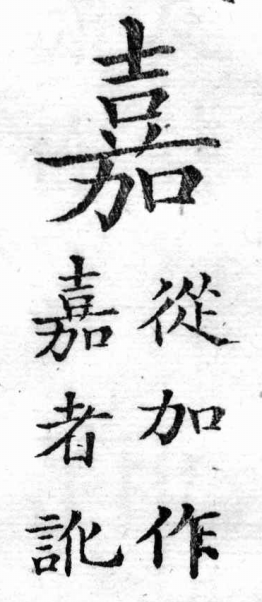 嘉
從加作
嘉者訛